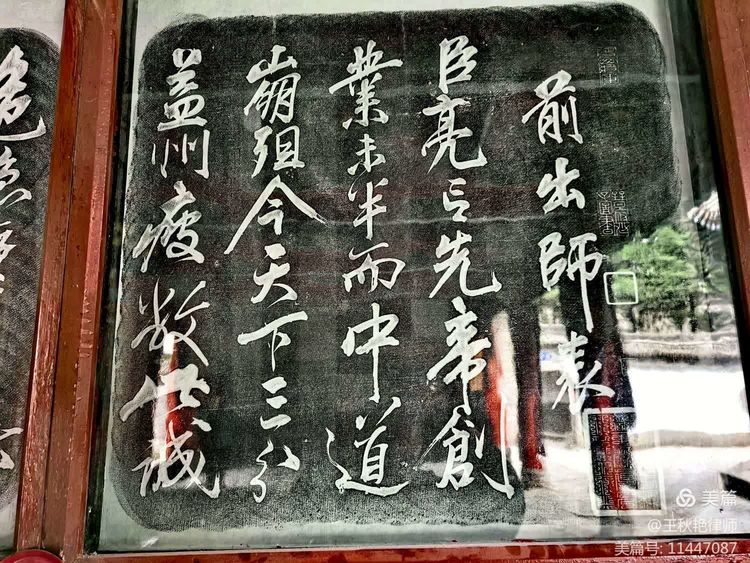 前出師表
臣亮言先帝創
業未半而中道
崩殂今天下三分
益州疲敝此誠
美篇
@王秋艳律师
美篇号: 11447087